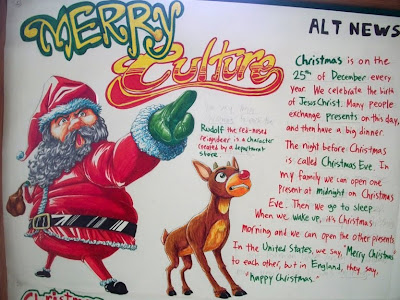 MERRY
Culture
ALT NEWS
Christmas is on the
25th of December every
year. We celebrate the birth
of Jesus Christ. Many people
exchange presents on this day,
and then have a big dinner.
The night before Christmas
is called Christmas Eve. In
my family we can open one
present at midnight on Christmas
Eve. Then we go to sleep.
When we wake up, it's Christmas
Morning and we can open the other presents.
In the United States, we say, "Merry Christmas"
to each other, but in England, they say,
"Happy Christmas."
Rudolf the red-nosed
reigndeer is a character
created by a department
store.
Christmas